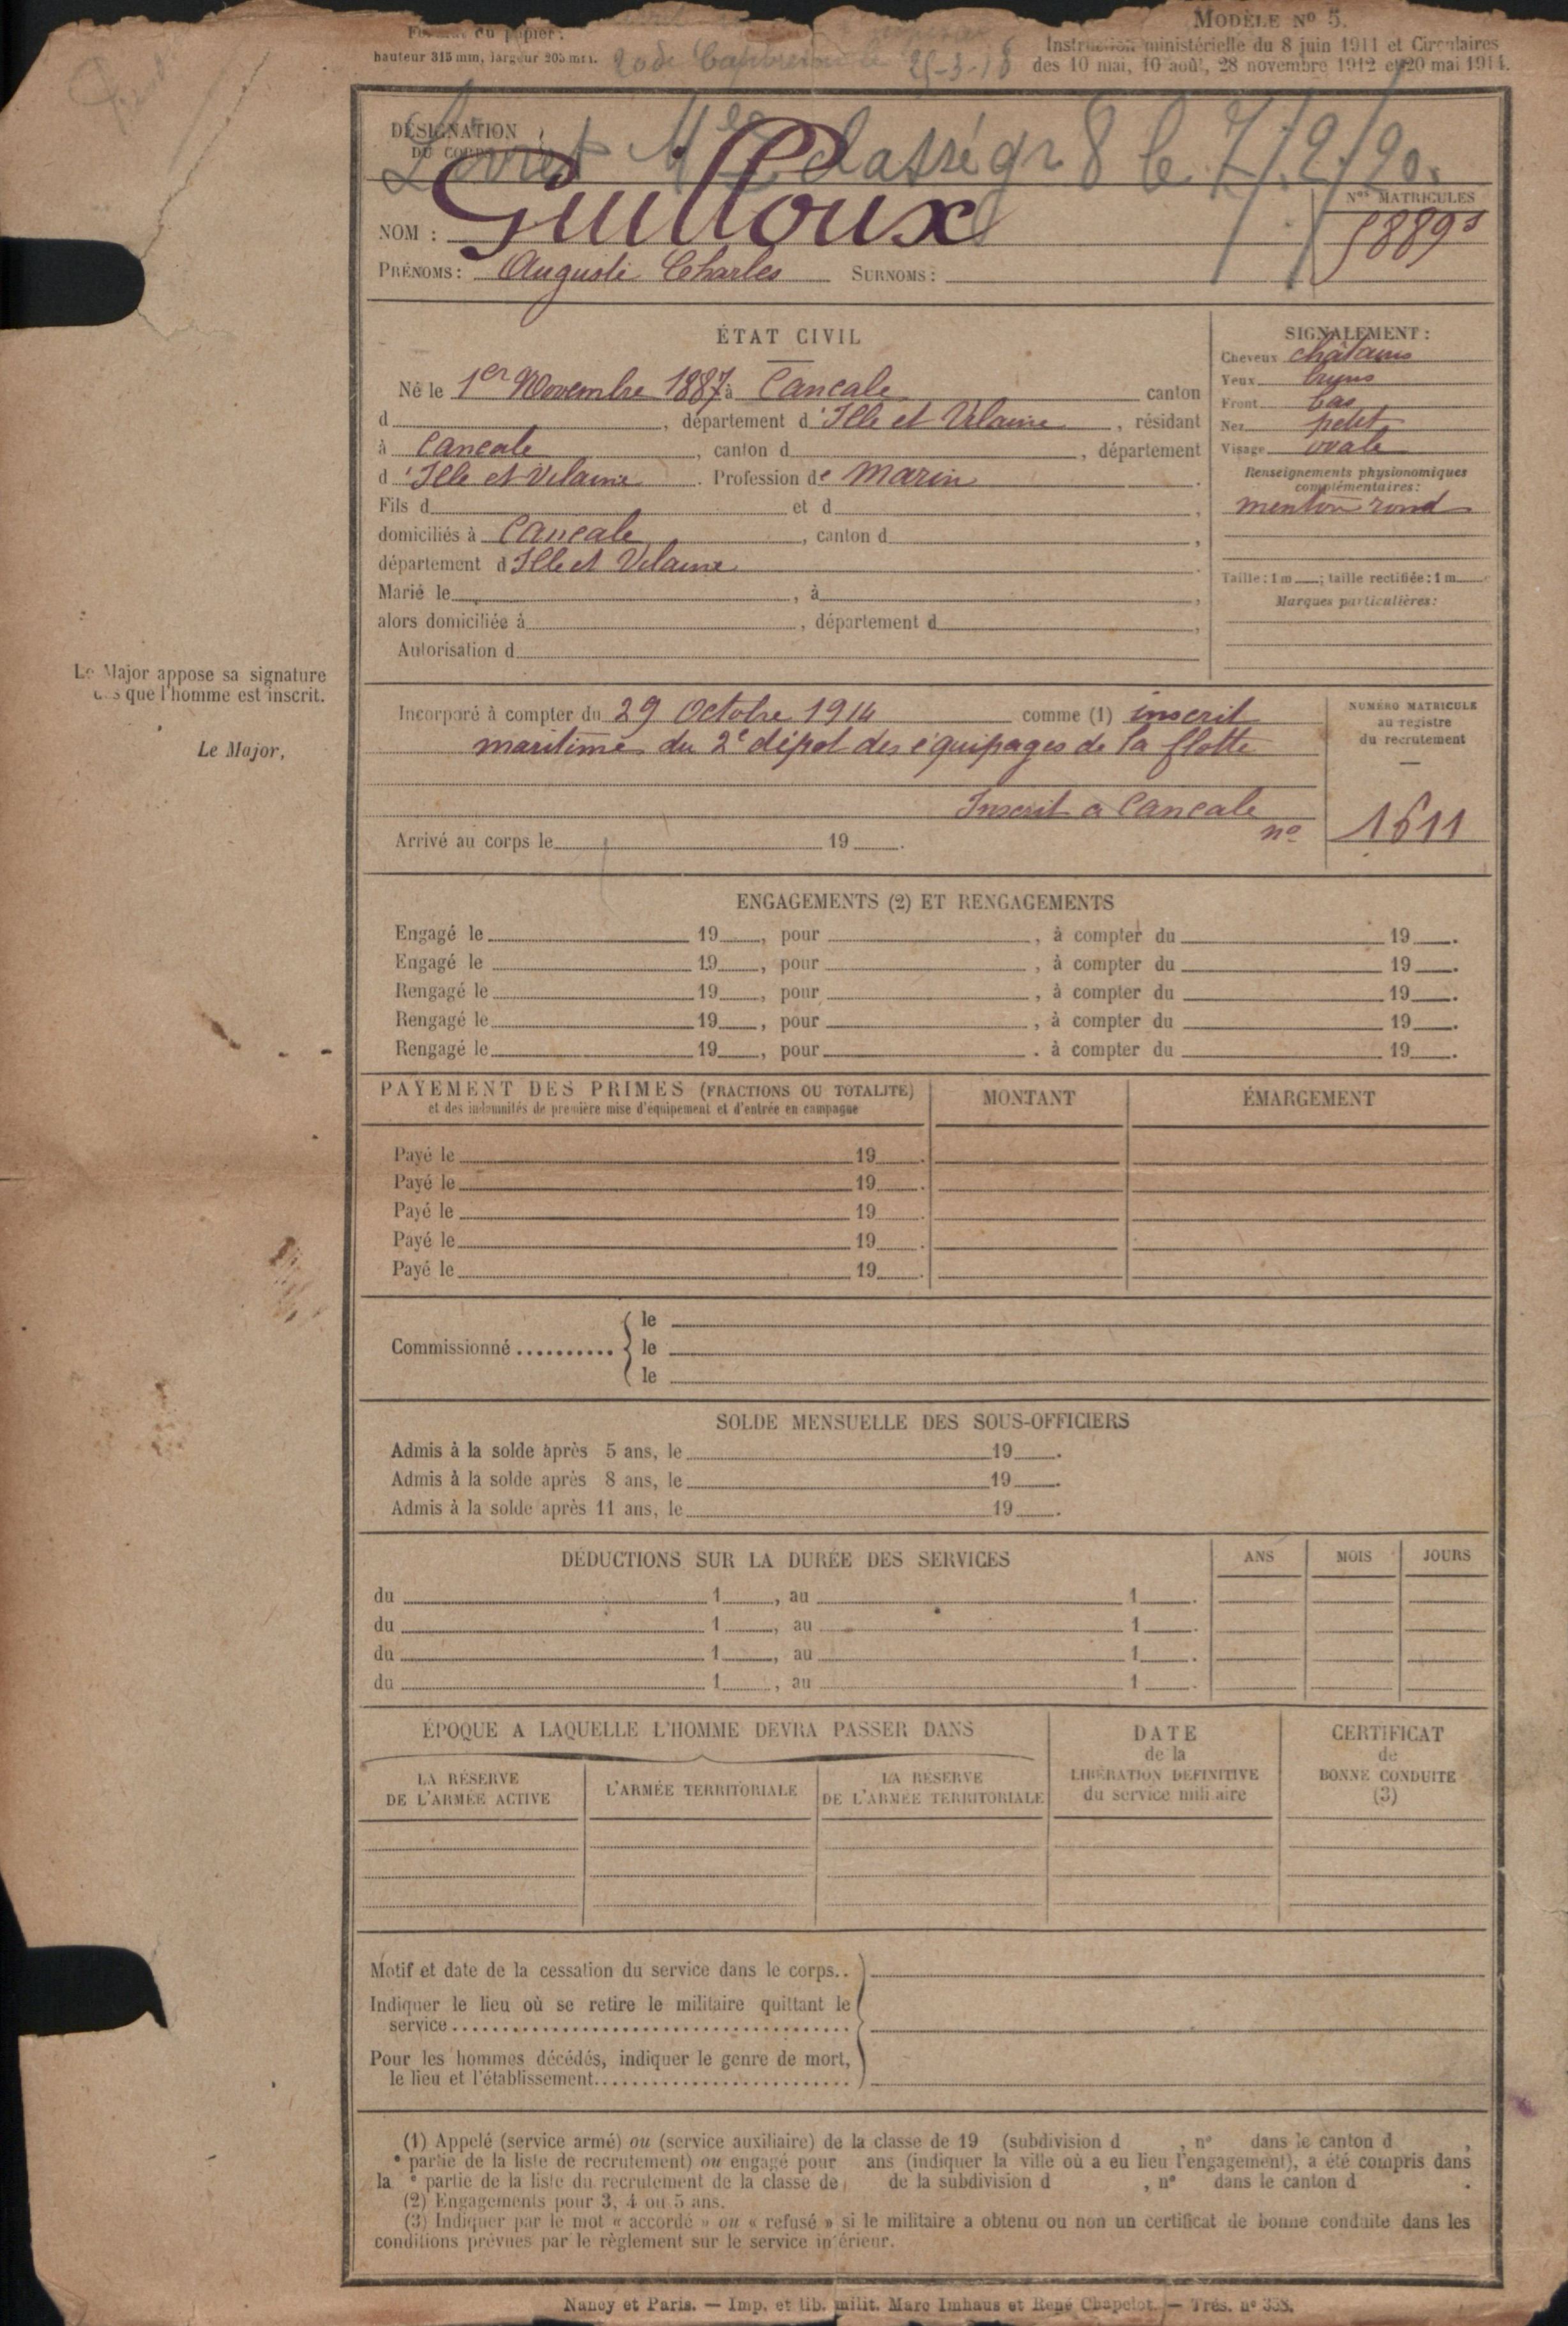 MODÈLE Nº 5.
Format du papier :
hauteur 315 mm, largeur 205 mm.
Instruction ministérielle du 8 juin 1911 et Circulaires
des 10 mai, 10 août, 28 novembre 1912 et 20 mai 1914.
25-3-18
DÉSIGNATION
DU CORPS
Livret Mle classé gr 8 le 7/2/20.
Nos MATRICULES
NOM : Guilloux
58895
PRÉNOMS : Auguste Charles SURNOMS :
ÉTAT CIVIL
Né le 1er Novembre 1887 à Cancale canton
d , département d'Ille et Vilaine , résidant
à Cancale , canton d , département
d'Ille et Vilaine . Profession de Marin .
Fils d et d ,
domiciliés à Cancale , canton d ,
département d Ille et Vilaine .
Marié le , à ,
alors domiciliée à , département d ,
Autorisation d
SIGNALEMENT :
Cheveux châtains
Yeux bruns
Front bas
Nez petit
Visage ovale
Renseignements physionomiques
complémentaires :
menton rond
Taille : 1 m ; taille rectifiée : 1 m
Marques particulières :
Le Major appose sa signature
dès que l'homme est inscrit.
Le Major,
Incorporé à compter du 29 Octobre 1914 comme (1) inscrit
maritime du 2e dépot des équipages de la flotte
Inscrit a Cancale
nº
Arrivé au corps le 19 .
NUMÉRO MATRICULE
au registre
du recrutement
1611
ENGAGEMENTS (2) ET RENGAGEMENTS
Engagé le 19 , pour , à compter du 19 .
Engagé le 19 , pour , à compter du 19 .
Rengagé le 19 , pour , à compter du 19 .
Rengagé le 19 , pour , à compter du 19 .
Rengagé le 19 , pour . à compter du 19 .
PAYEMENT DES PRIMES (FRACTIONS OU TOTALITÉ)
et des indemnités de première mise d'équipement et d'entrée en campagne
MONTANT
ÉMARGEMENT
Payé le 19 .
Payé le 19 .
Payé le 19 .
Payé le 19 .
Payé le 19 .
Commissionné
le
le
le
SOLDE MENSUELLE DES SOUS-OFFICIERS
Admis à la solde après 5 ans, le 19 .
Admis à la solde après 8 ans, le 19 .
Admis à la solde après 11 ans, le 19 .
DÉDUCTIONS SUR LA DURÉE DES SERVICES
ANS
MOIS
JOURS
du 1 , au 1 .
du 1 , au 1 .
du 1 , au 1 .
du 1 , au 1 .
ÉPOQUE A LAQUELLE L'HOMME DEVRA PASSER DANS
LA RÉSERVE
DE L'ARMÉE ACTIVE
L'ARMÉE TERRITORIALE
LA RÉSERVE
DE L'ARMÉE TERRITORIALE
DATE
de la
LIBÉRATION DÉFINITIVE
du service militaire
CERTIFICAT
de
BONNE CONDUITE
(3)
Motif et date de la cessation du service dans le corps..
Indiquer le lieu où se retire le militaire quittant le
service
Pour les hommes décédés, indiquer le genre de mort,
le lieu et l'établissement
(1) Appelé (service armé) ou (service auxiliaire) de la classe de 19 (subdivision d , nº dans le canton d ,
e partie de la liste de recrutement) ou engagé pour ans (indiquer la ville où a eu lieu l'engagement), a été compris dans
la e partie de la liste du recrutement de la classe de de la subdivision d , nº dans le canton d .
(2) Engagements pour 3, 4 ou 5 ans.
(3) Indiquer par le mot « accordé » ou « refusé » si le militaire a obtenu ou non un certificat de bonne conduite dans les
conditions prévues par le règlement sur le service intérieur.
Nancy et Paris. — Imp. et lib. milit. Marc Imhaus et René Chapelot. — Trés. nº 338.